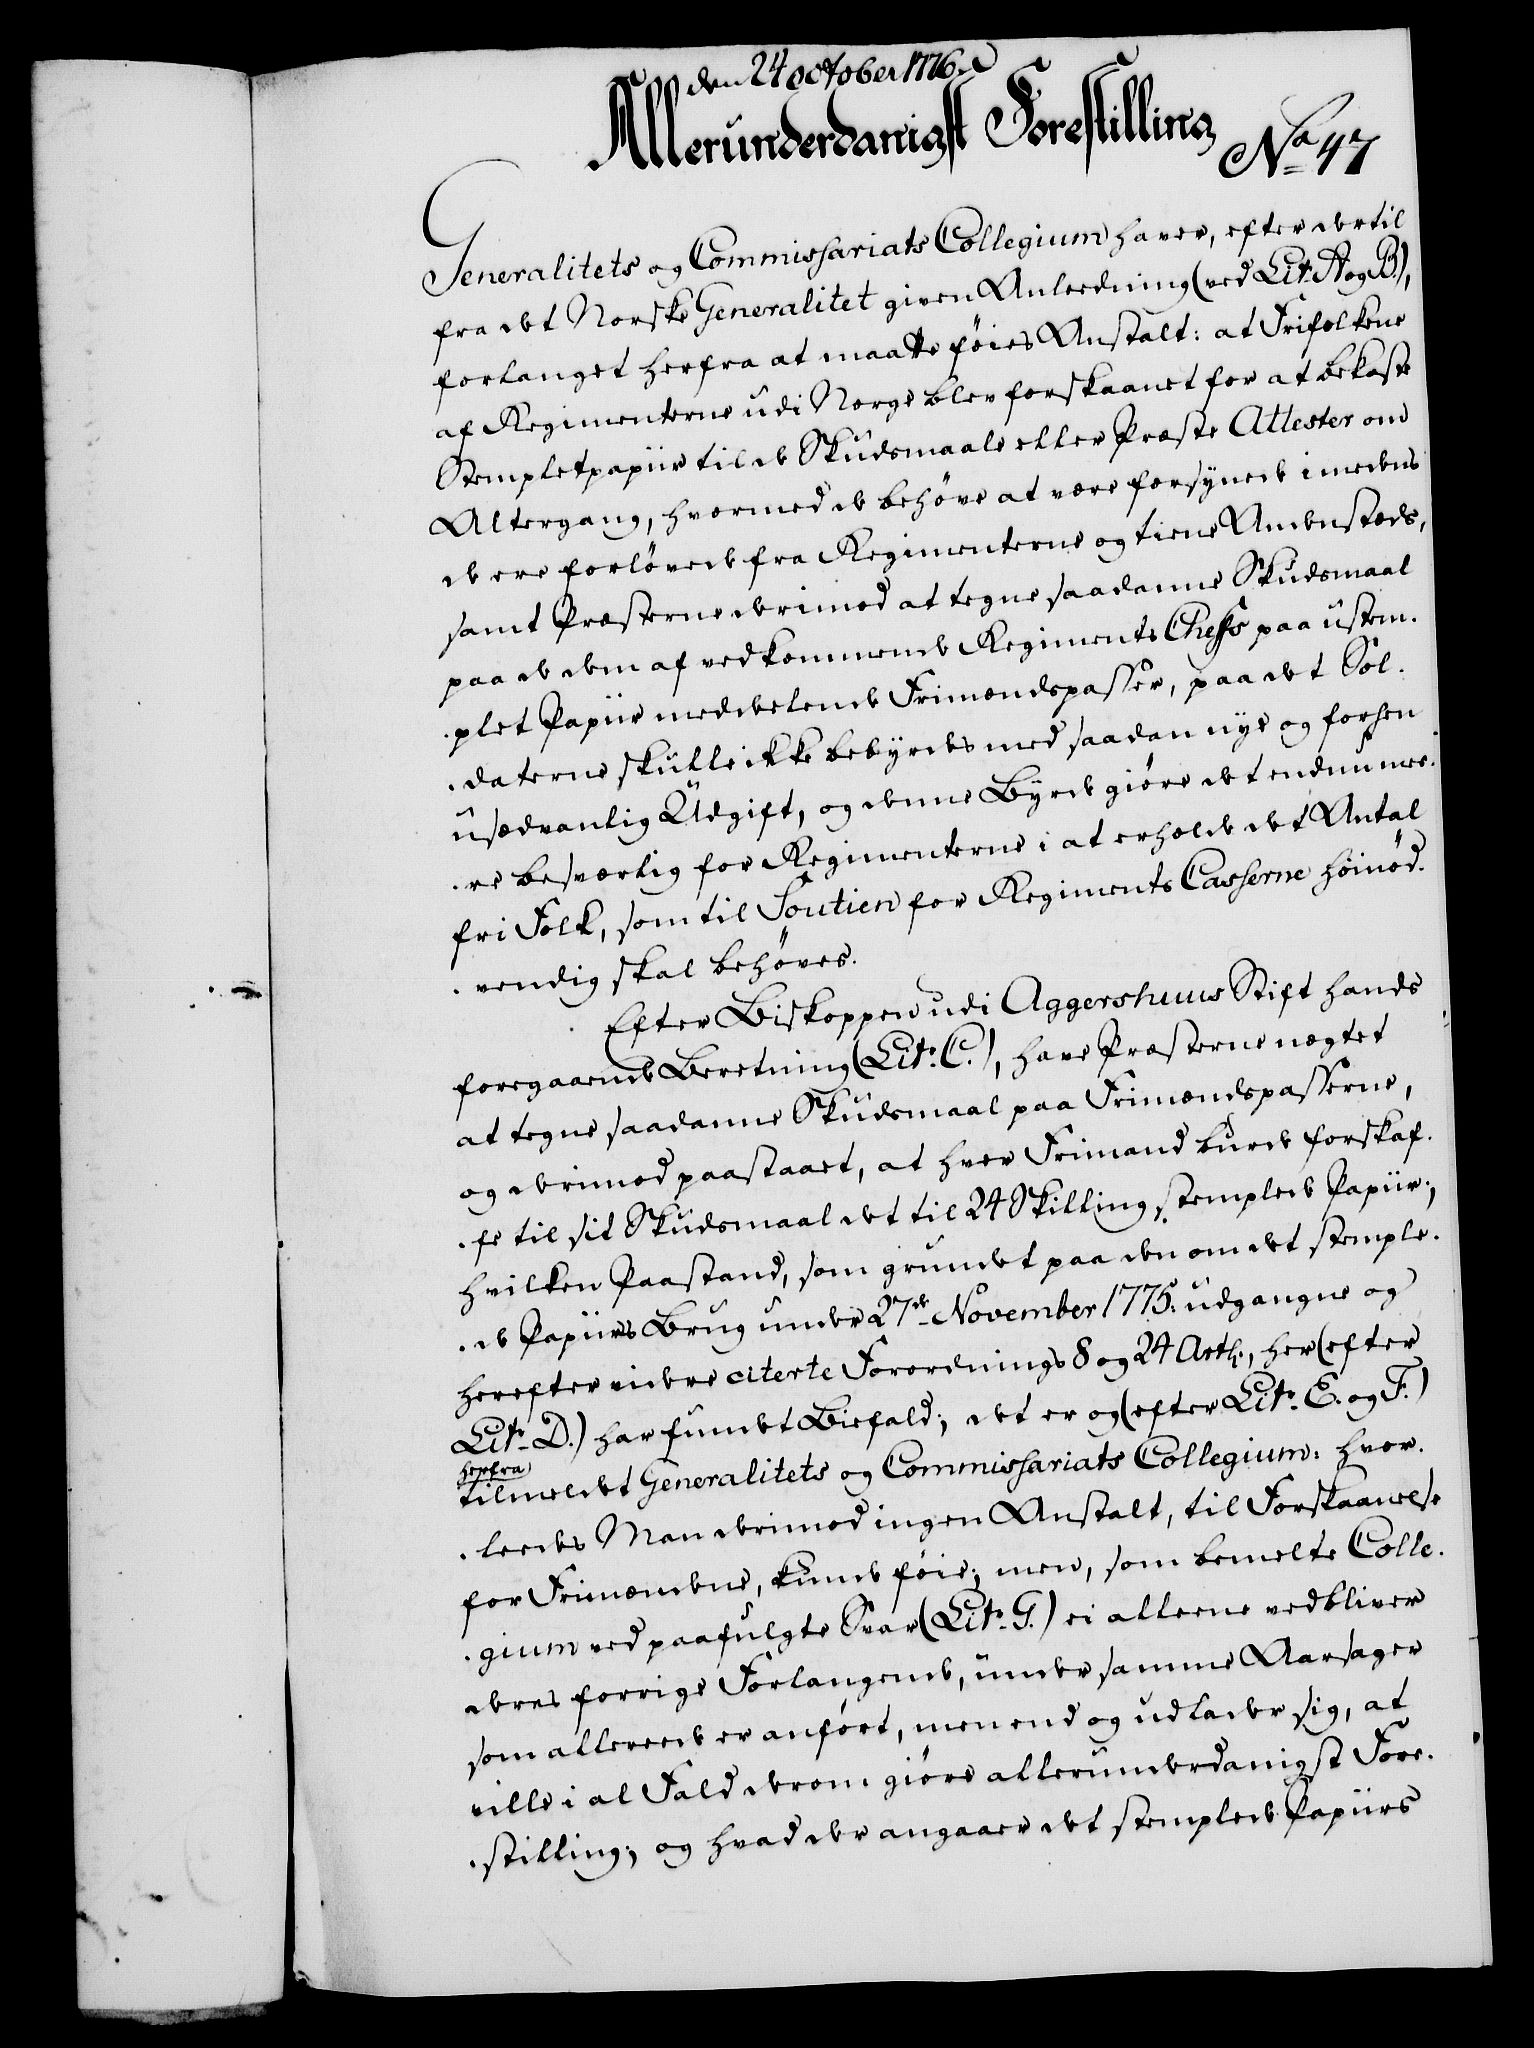 den 24 October 1776.
Allerunderdanigst Forestilling
No 47
Generalitets og Commissariats Collegium haver, efter dertil
fra det Norske Generalitet given Anledning (ved Litr. A og B.),
forlanget herfra at maatte føies Anstalt: at Frifolkene
af Regimenterne udi Norge blev forskaanet for at bekoste
Stemplet papiir til de Skudsmaale eller Præste Attester om
Altergang, hvormed de behøve at være forsynede imedens
de ere forløvede fra Regimenterne og tiene Andenstæds,
samt Præsterne derimod at tegne saadanne Skudsmaal
paa de dem af vedkommende Regiments Cheffs paa ustem-
-plet Papiir meddelende Frimændspasser, paa det Sol-
-daterne skulle ikke bebyrdes med saadan nye og forhen
usædvanlig Udgift, og denne Byrde giøre det endnu mee-
-re besværlig for Regimenterne i at erholde det Antal
fri Folk, som til Soutien for Regiments Casserne høinød-
-vendig skal behøves.
Efter Biskoppen udi Aggershuus Stift hands
foregaaende Beretning (Litr. C.), have Præsterne nægtet
at tegne saadanne Skudsmaal paa Frimændspasserne,
og derimod paastaaet, at hver Frimand burde forskaf-
-fe til sit Skudsmaal det til 24 Skilling stemplede Papiir;
hvilken Paastand, som grundet paa den om det stemple-
-de Papiirs Brug under 27de November 1775. udgangne og
herefter videre citerte Forordnings 8 og 24 Artl:, her (efter
Litr. D.) har fundet Biefald; det er og (efter Litr. E. og F.)
herfra
tilmeldet Generalitets og Commissariats Collegium: hvor-
-leedes Man derimod ingen Anstalt, til Forskaanelse
for Frimændene, kunde føie; men, som bemelte Colle-
-gium ved paafulgte Svar (Litr. G.) ei alleene vedbliver
deres forrige Forlangende, under samme Aarsager
som allerede er anført, men end og udlader sig, at
ville i al Fald derom giøre allerunderdanigst Fore-
-stilling; og hvad der angaaer det stemplede Papiirs